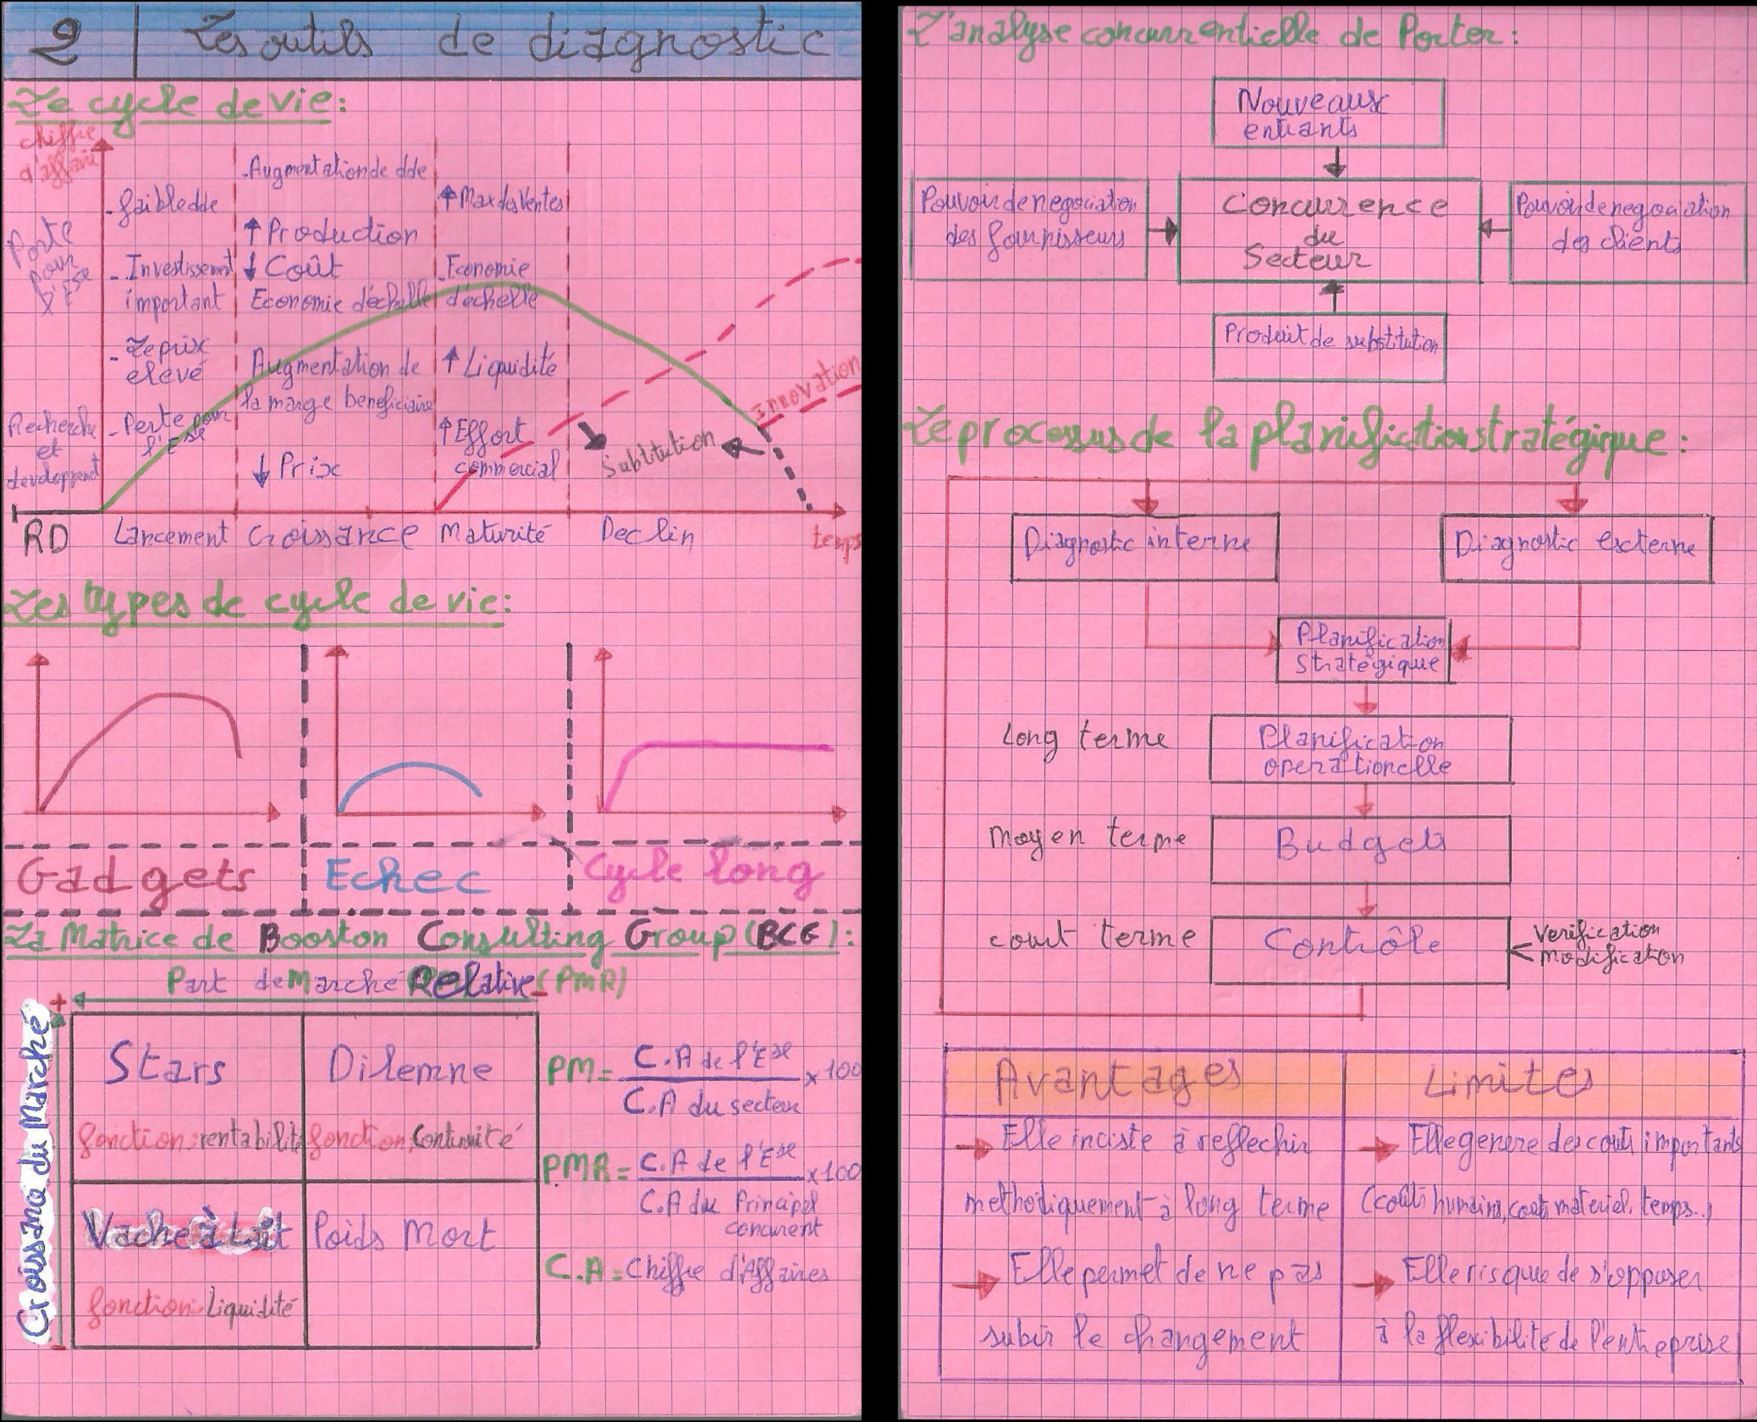 2 | Les outils de diagnostic
Le cycle de vie:
chiffre
d'affaire
Perte
pour
l'Ese
Recherche
et
devloppment
- faible dde
- Investissement
important
- Le prix
elevé
- Perte pour
l'Ese
- Augmentation de dde
↑ Production
↓ Coût
Economie d'échelle
Augmentation de
la marge beneficiaire
↓ Prix
↑ Max des Ventes
- Economie
d'échelle
↑ Liquidité
↑ Effort
commercial
Substitution
Innovation
RD
Lancement
Croissance
Maturité
Declin
temps
Les types de cycle de vie:
Gadgets
Echec
Cycle long
La Matrice de Booston Consulting Group (BCG):
Part de Marché Relative (PMR)
+
Croissance du Marché
-
Stars
fonction: rentabilité
Dilemne
fonction: Continuité
Vache à Lait
fonction: Liquidité
Poids Mort
PM = C.A de l'Ese / C.A du secteur x 100
PMR = C.A de l'Ese / C.A du Principal x 100
concurent
C.A = Chiffre d'Affaires
L'analyse concurrentielle de Porter:
Nouveaux
entrants
Pouvoir de negociation
des fournisseurs
Concurrence
du
Secteur
Pouvoir de negociation
des clients
Produit de substitution
Le processus de la planification stratégique:
Diagnostic interne
Diagnostic externe
Planification
Stratégique
Long terme
Planification
operationelle
Moyen terme
Budgets
court terme
Contrôle
Verification
Modification
Avantages
Limites
→ Elle inciste à reflechir
methodiquement à long terme
→ Elle permet de ne pas
subir le changement
→ Elle genere des couts importants
(couts humains, couts materiel, temps..)
→ Elle risque de s'opposer
à la flexibilité de l'entreprise